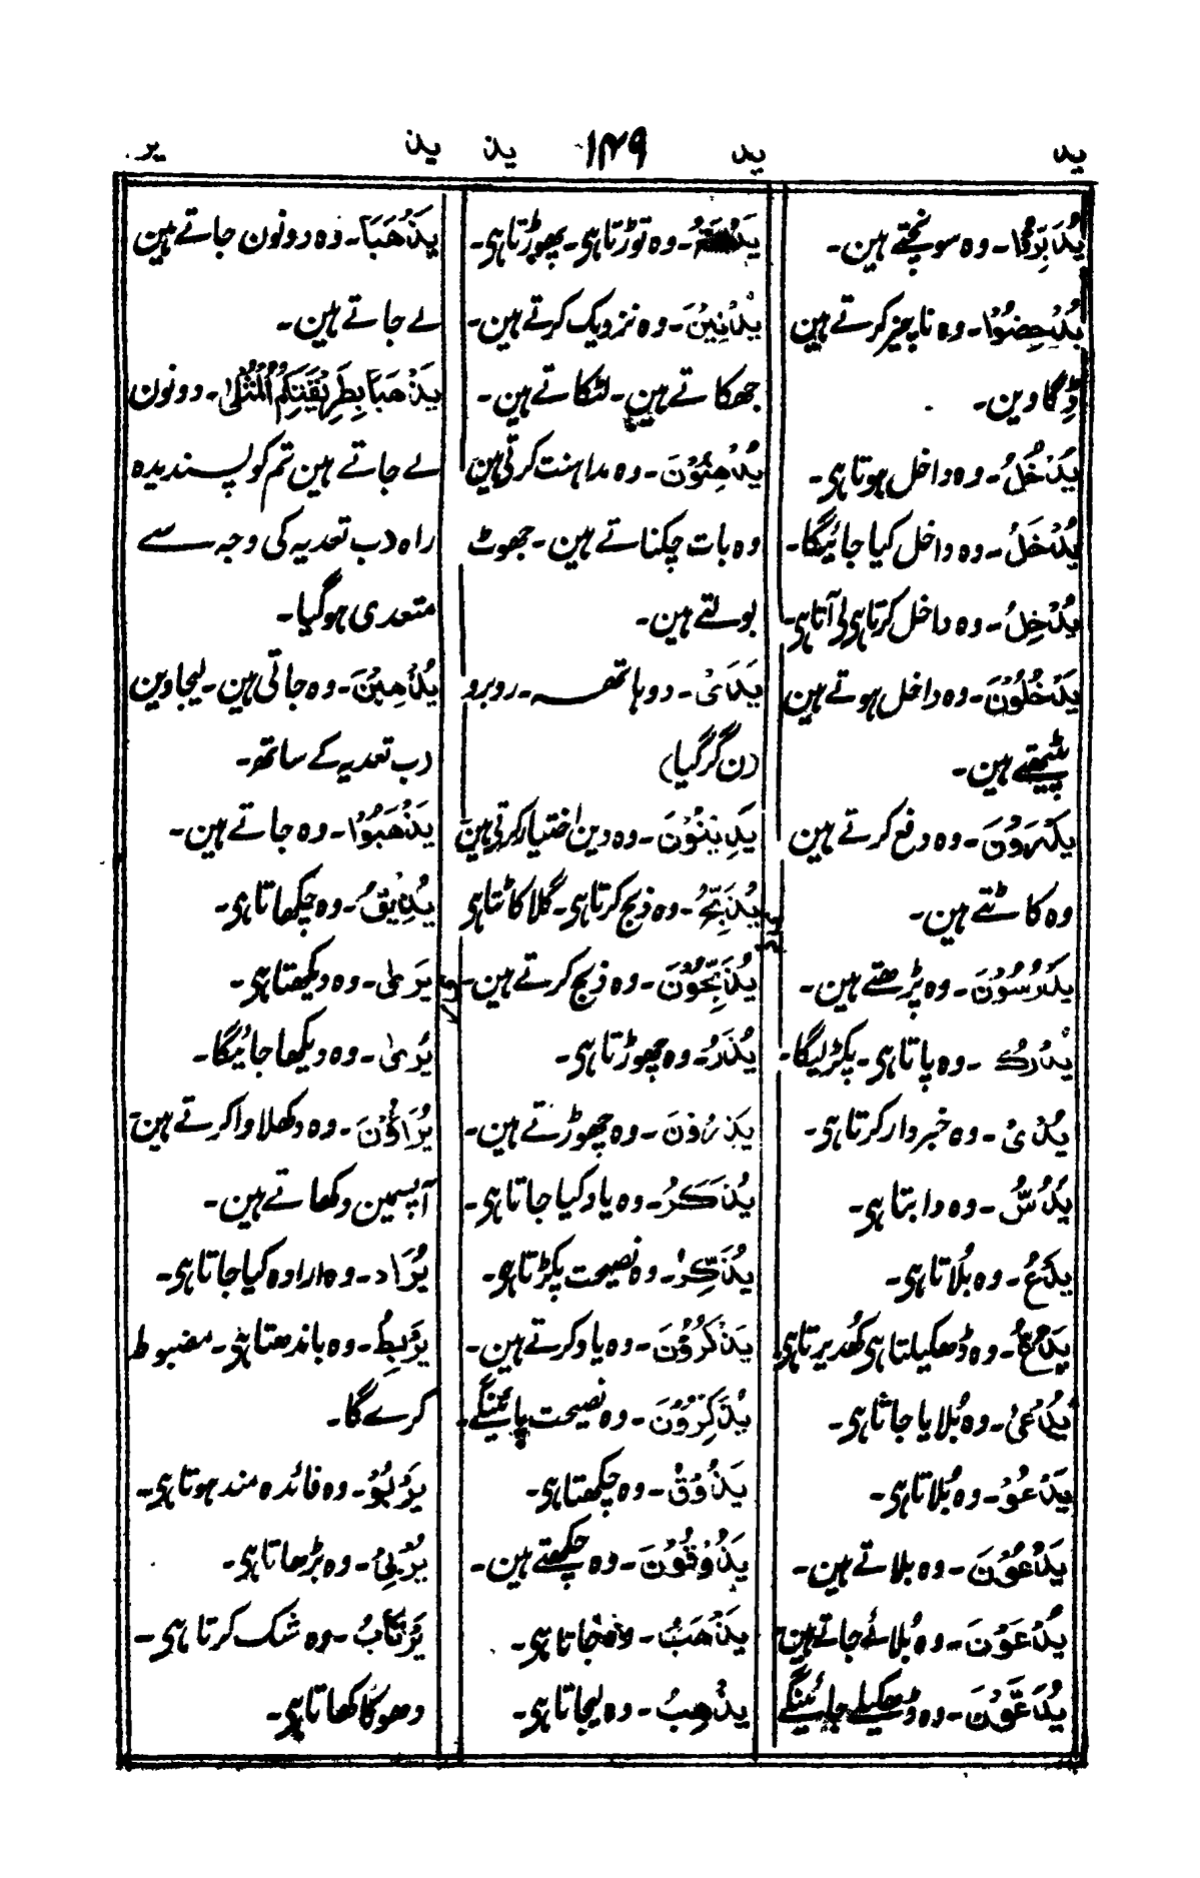 ید ید ۱۴۹ ین یذ یر
یَدَّبَّرُوْا۔ وہ سونچتے ہین۔
یُدْحِضُوْا۔ وہ ناچیز کرتے ہین
ڈِگا وین۔
یَدْخُلُ۔ وہ داخل ہوتا ہی۔
یُدْخَلُ۔ وہ داخل کیا جائیگا۔
یُدْخِلُ۔ وہ داخل کرتا ہی لی آتا ہی۔
یَدْخُلُوْنَ۔ وہ داخل ہوتے ہین
بیٹھتے ہین۔
یَدْرَءُوْنَ۔ وہ دفع کرتے ہین
وہ کاٹتے ہین۔
یَدْرُسُوْنَ۔ وہ پڑھتے ہین۔
یُدْرِكُ۔ وہ پاتا ہی۔ پکڑلیگا۔
یُدْرِیْ۔ وہ خبردار کرتا ہی۔
یَدُسُّ۔ وہ دابتا ہی۔
یَدْعُ۔ وہ بُلاتا ہی۔
یَدُعُّ۔ وہ ڈھکیلتا ہی کھُدیرتا ہی
یُدْعیٰ۔ وہ بُلایا جاتا ہی۔
یَدْعُوْ۔ وہ بُلاتا ہی۔
یَدْعُوْنَ۔ وہ بلاتے ہین۔
یُدْعَوْنَ۔ وہ بُلائے جاتے ہین
یُدَعُّوْنَ۔ وہ ڈھکیلے جائینگے
وہ توڑتا ہی۔ پھوڑتا ہی۔
یُدْنِیْنَ۔ وہ نزدیک کرتے ہین۔
جھکاتے ہین۔ لٹکاتے ہین۔
یُدْھِنُوْنَ۔ وہ مداہنت کرتی ہین
وہ بات چکناتے ہین۔ جھوٹ
بولتے ہین۔
یَدَیْ۔ دو ہاتھ۔ روبرو
(ن گر گیا)
یَدِیْنُوْنَ۔ وہ دین اختیار کرتی ہین
یُذَبِّحُ۔ وہ ذبح کرتا ہی۔ گلا کاٹتا ہی
یُذَبِّحُوْنَ۔ وہ ذبح کرتے ہین۔
یَذَرُ۔ وہ چھوڑتا ہی۔
یَذَرُوْنَ۔ وہ چھوڑتے ہین۔
یُذْكَرُ۔ وہ یاد کیا جاتا ہی۔
یَذَّكَّرُ۔ وہ نصیحت پکڑتا ہی۔
یَذْكُرُوْنَ۔ وہ یاد کرتے ہین۔
یَذَّكَّرُوْنَ۔ وہ نصیحت پائینگے۔
یَذُوْقُ۔ وہ چکھتا ہی۔
یَذُوْقُوْنَ۔ وہ چکھتے ہین۔
یَذْهَبُ۔ وہ جاتا ہی۔
یُذْهِبُ۔ وہ لیجاتا ہی۔
یَذْهَبَا۔ وہ دونون جاتے ہین
لے جاتے ہین۔
یَذْهَبَا بِطَرِیْقَتِكُمُ الْمُثْلیٰ۔ دونون
لے جاتے ہین تم کو پسندیدہ
راہ (ب تعدیہ کی وجہ سے
متعدی ہوگیا۔
یُذْهِبْنَ۔ وہ جاتی ہین۔ لیجاوین
(ب تعدیہ کے ساتھ۔
یَذْهَبُوْا۔ وہ جاتے ہین۔
یُذِیْقُ۔ وہ چکھاتا ہی۔
یَریٰ۔ وہ دیکھتا ہی۔
یُریٰ۔ وہ دیکھا جائیگا۔
یُرَاؤُنَ۔ وہ دکھلاوا کرتے ہین
آپسمین دکھاتے ہین۔
یُرَاد۔ وہ ارادہ کیا جاتا ہی۔
یَرْبِطُ۔ وہ باندھتا ہی۔ مضبوط
کرے گا۔
یَرْبُوْ۔ وہ فائدہ مند ہوتا ہی۔
یُرْبِیْ۔ وہ بڑھاتا ہی۔
یَرْتَابُ۔ وہ شک کرتا ہی۔
دھوکا کھاتا ہی۔